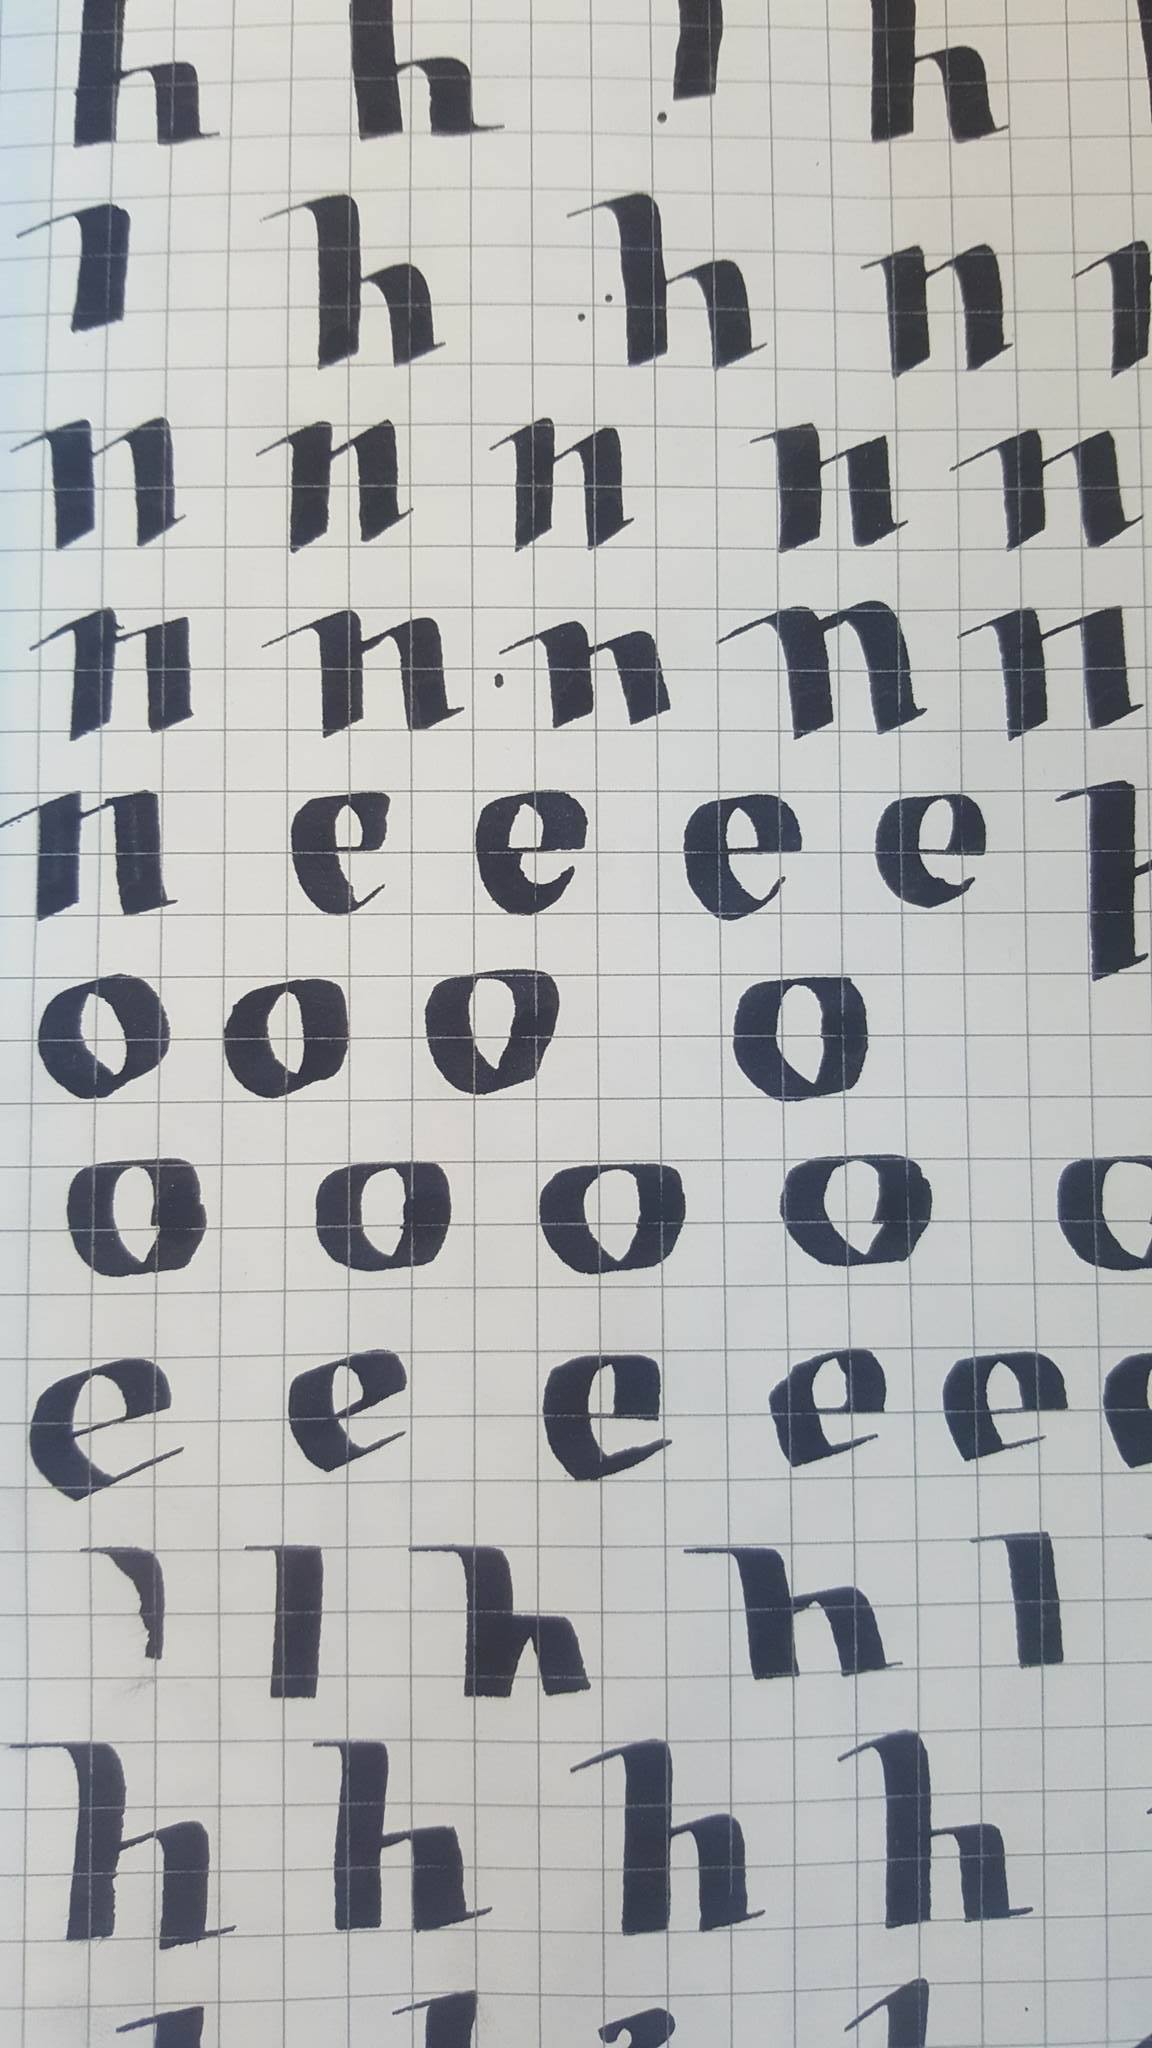 h h h
h h n
n n n n n
n n n n n
n e e e e h
o o o o
o o o o o
e e e e e e
l h h l
h h h h